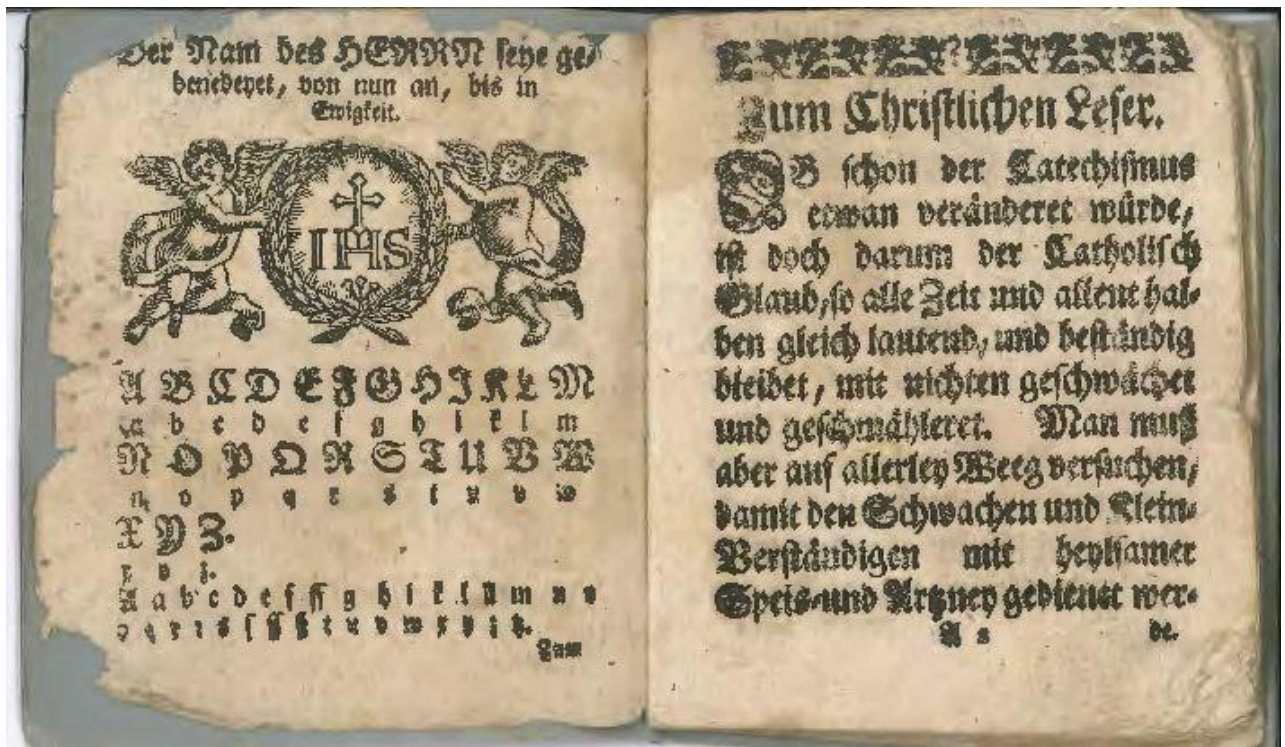 Der Nam des HERRN seye ge-
benedeyet, von nun an, bis in
Ewigkeit.
IHS
A B C D E F G H I K L M
a b c d e f g h i k l m
N O P Q R S T U V W
n o p q r s t u v w
X Y Z.
x y z.
A a b c d e f ff g h i k l m n
Zum
Zum Christlichen Leser.
OB schon der Catechismus
etwan veränderet würde,
ist doch darum der Catholisch
Glaub, so alle Zeit und allenthal-
ben gleich lautend, und beständig
bleibet, mit nichten geschwächet
und geschmähleret. Man muß
aber auf allerley Weeg versuchen,
damit den Schwachen und Klein-
Verständigen mit heylsamer
Speis- und Artzney gedienet wer-
A 2 de.